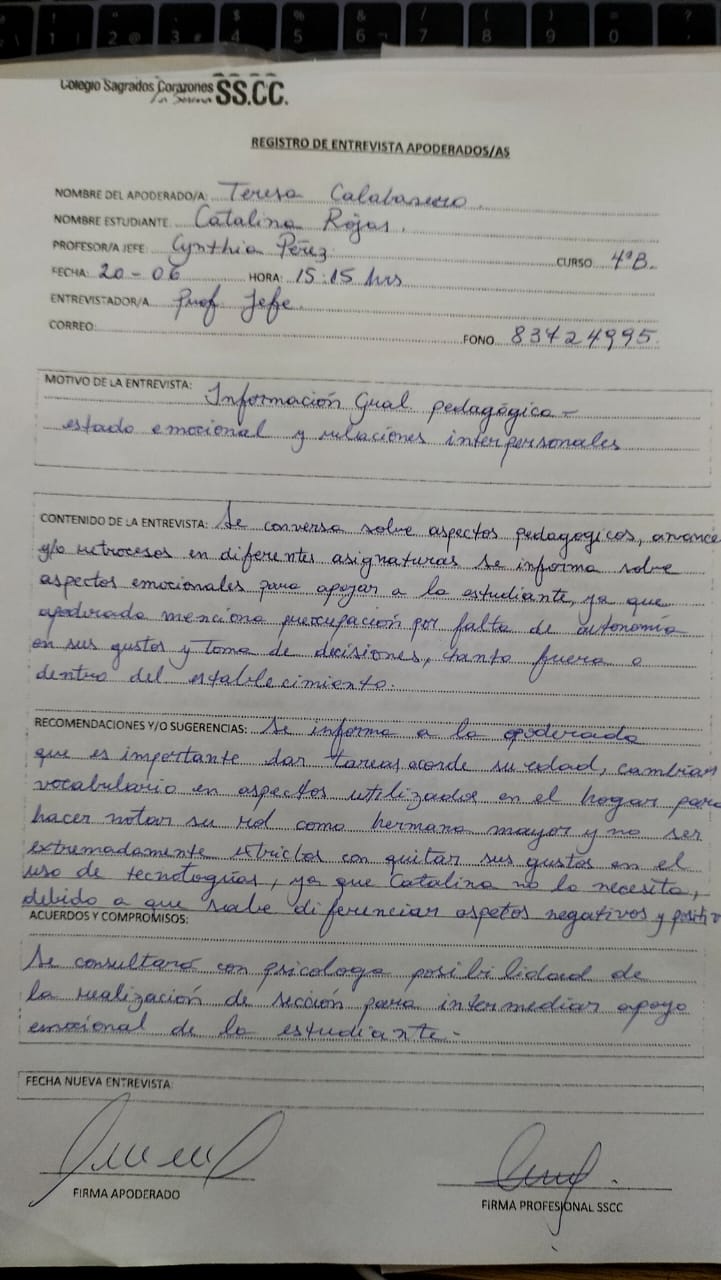 ! " @ # $ % & / ( ) = ?
1 2 3 4 5 6 7 8 9 0
Colegio Sagrados Corazones SS.CC.
La Serena
REGISTRO DE ENTREVISTA APODERADOS/AS
NOMBRE DEL APODERADO/A: Teresa
NOMBRE ESTUDIANTE: Catalina Rojas.
PROFESOR/A JEFE: Cynthia Pérez CURSO 4°B.
FECHA: 20-06 HORA: 15:15 hrs
ENTREVISTADOR/A Prof. Jefe.
CORREO: FONO 83724995.
MOTIVO DE LA ENTREVISTA: Información Gual pedagógica -
estado emocional y relaciones interpersonales
CONTENIDO DE LA ENTREVISTA: Se conversa sobre aspectos pedagogicos, avance
y/o retrocesos en diferentes asignaturas se informa sobre
aspectos emocionales para apoyar a la estudiante, ya que
apoderada menciona preocupación por falta de autonomía
en sus gustos y toma de decisiones, tanto fuera o
dentro del establecimiento.
RECOMENDACIONES Y/O SUGERENCIAS: Se informa a la apoderada
que es importante dar tareas acorde su edad, cambiar
vocabulario en aspectos utilizados en el hogar para
hacer notar su rol como hermana mayor y no ser
extremadamente estrictos con quitar sus gustos en el
uso de tecnologías, ya que Catalina no lo necesita,
debido a que sabe diferenciar aspetos negativos y positiv
ACUERDOS Y COMPROMISOS:
Se consultará con psicologa posibilidad de
la realización de sección para intermediar apoyo
emocional de la estudiante.-
FECHA NUEVA ENTREVISTA:
FIRMA APODERADO
FIRMA PROFESIONAL SSCC